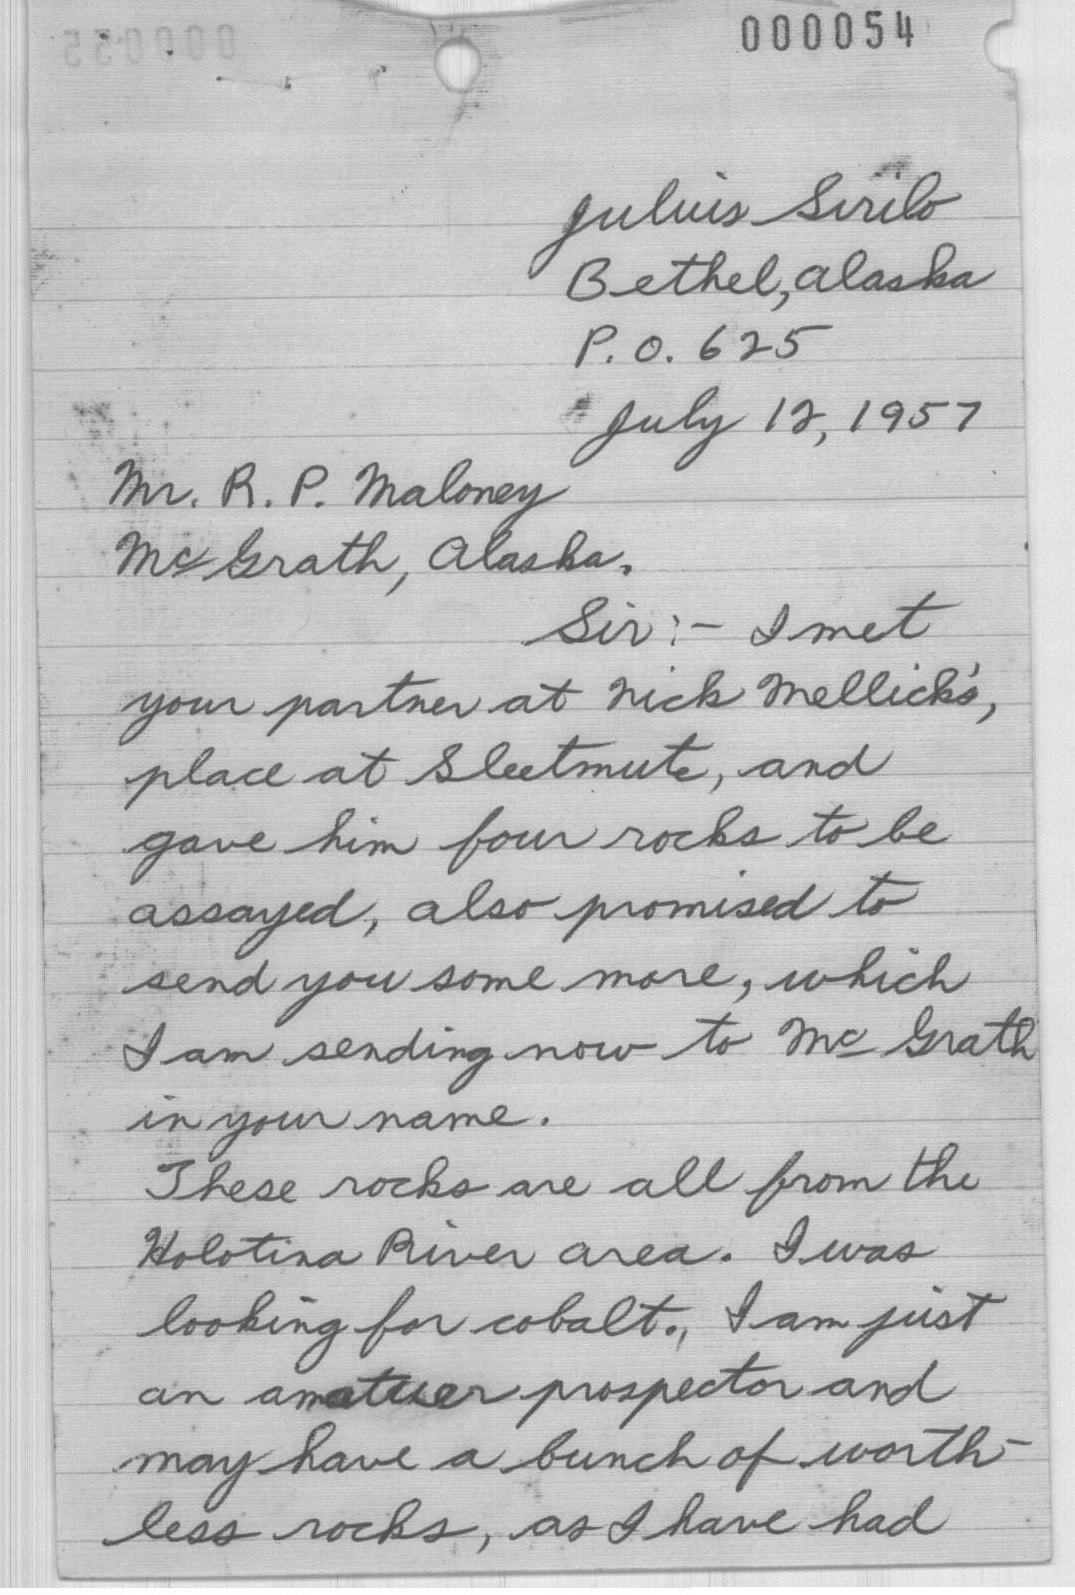 000054
Julius Sirilo
Bethel, Alaska
P. O. 625
July 12, 1957
Mr. R. P. Maloney
McGrath, Alaska.
Sir:- I met
your partner at Nick Mellick's,
place at Sleetmute, and
gave him four rocks to be
assayed, also promised to
send you some more, which
I am sending now to McGrath
in your name.
These rocks are all from the
Holotina River area. I was
looking for cobalt., I am just
an amatuer prospector and
may have a bunch of worth-
less rocks, as I have had